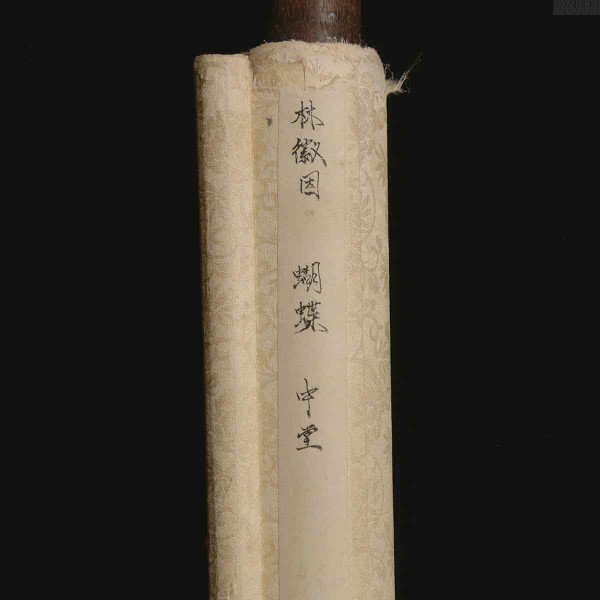 林徽因 蝴蝶 中堂